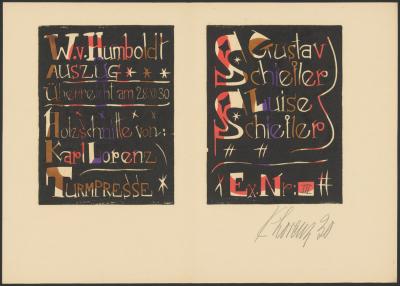 W.v. Humboldt
AUSZUG
Überreicht am 28.10.30
Holzschnitte von:
Karl Lorenz
TURMPRESSE
Gustav
Schiefler
Luise
Schiefler
Ex. Nr: III
K Lorenz 30